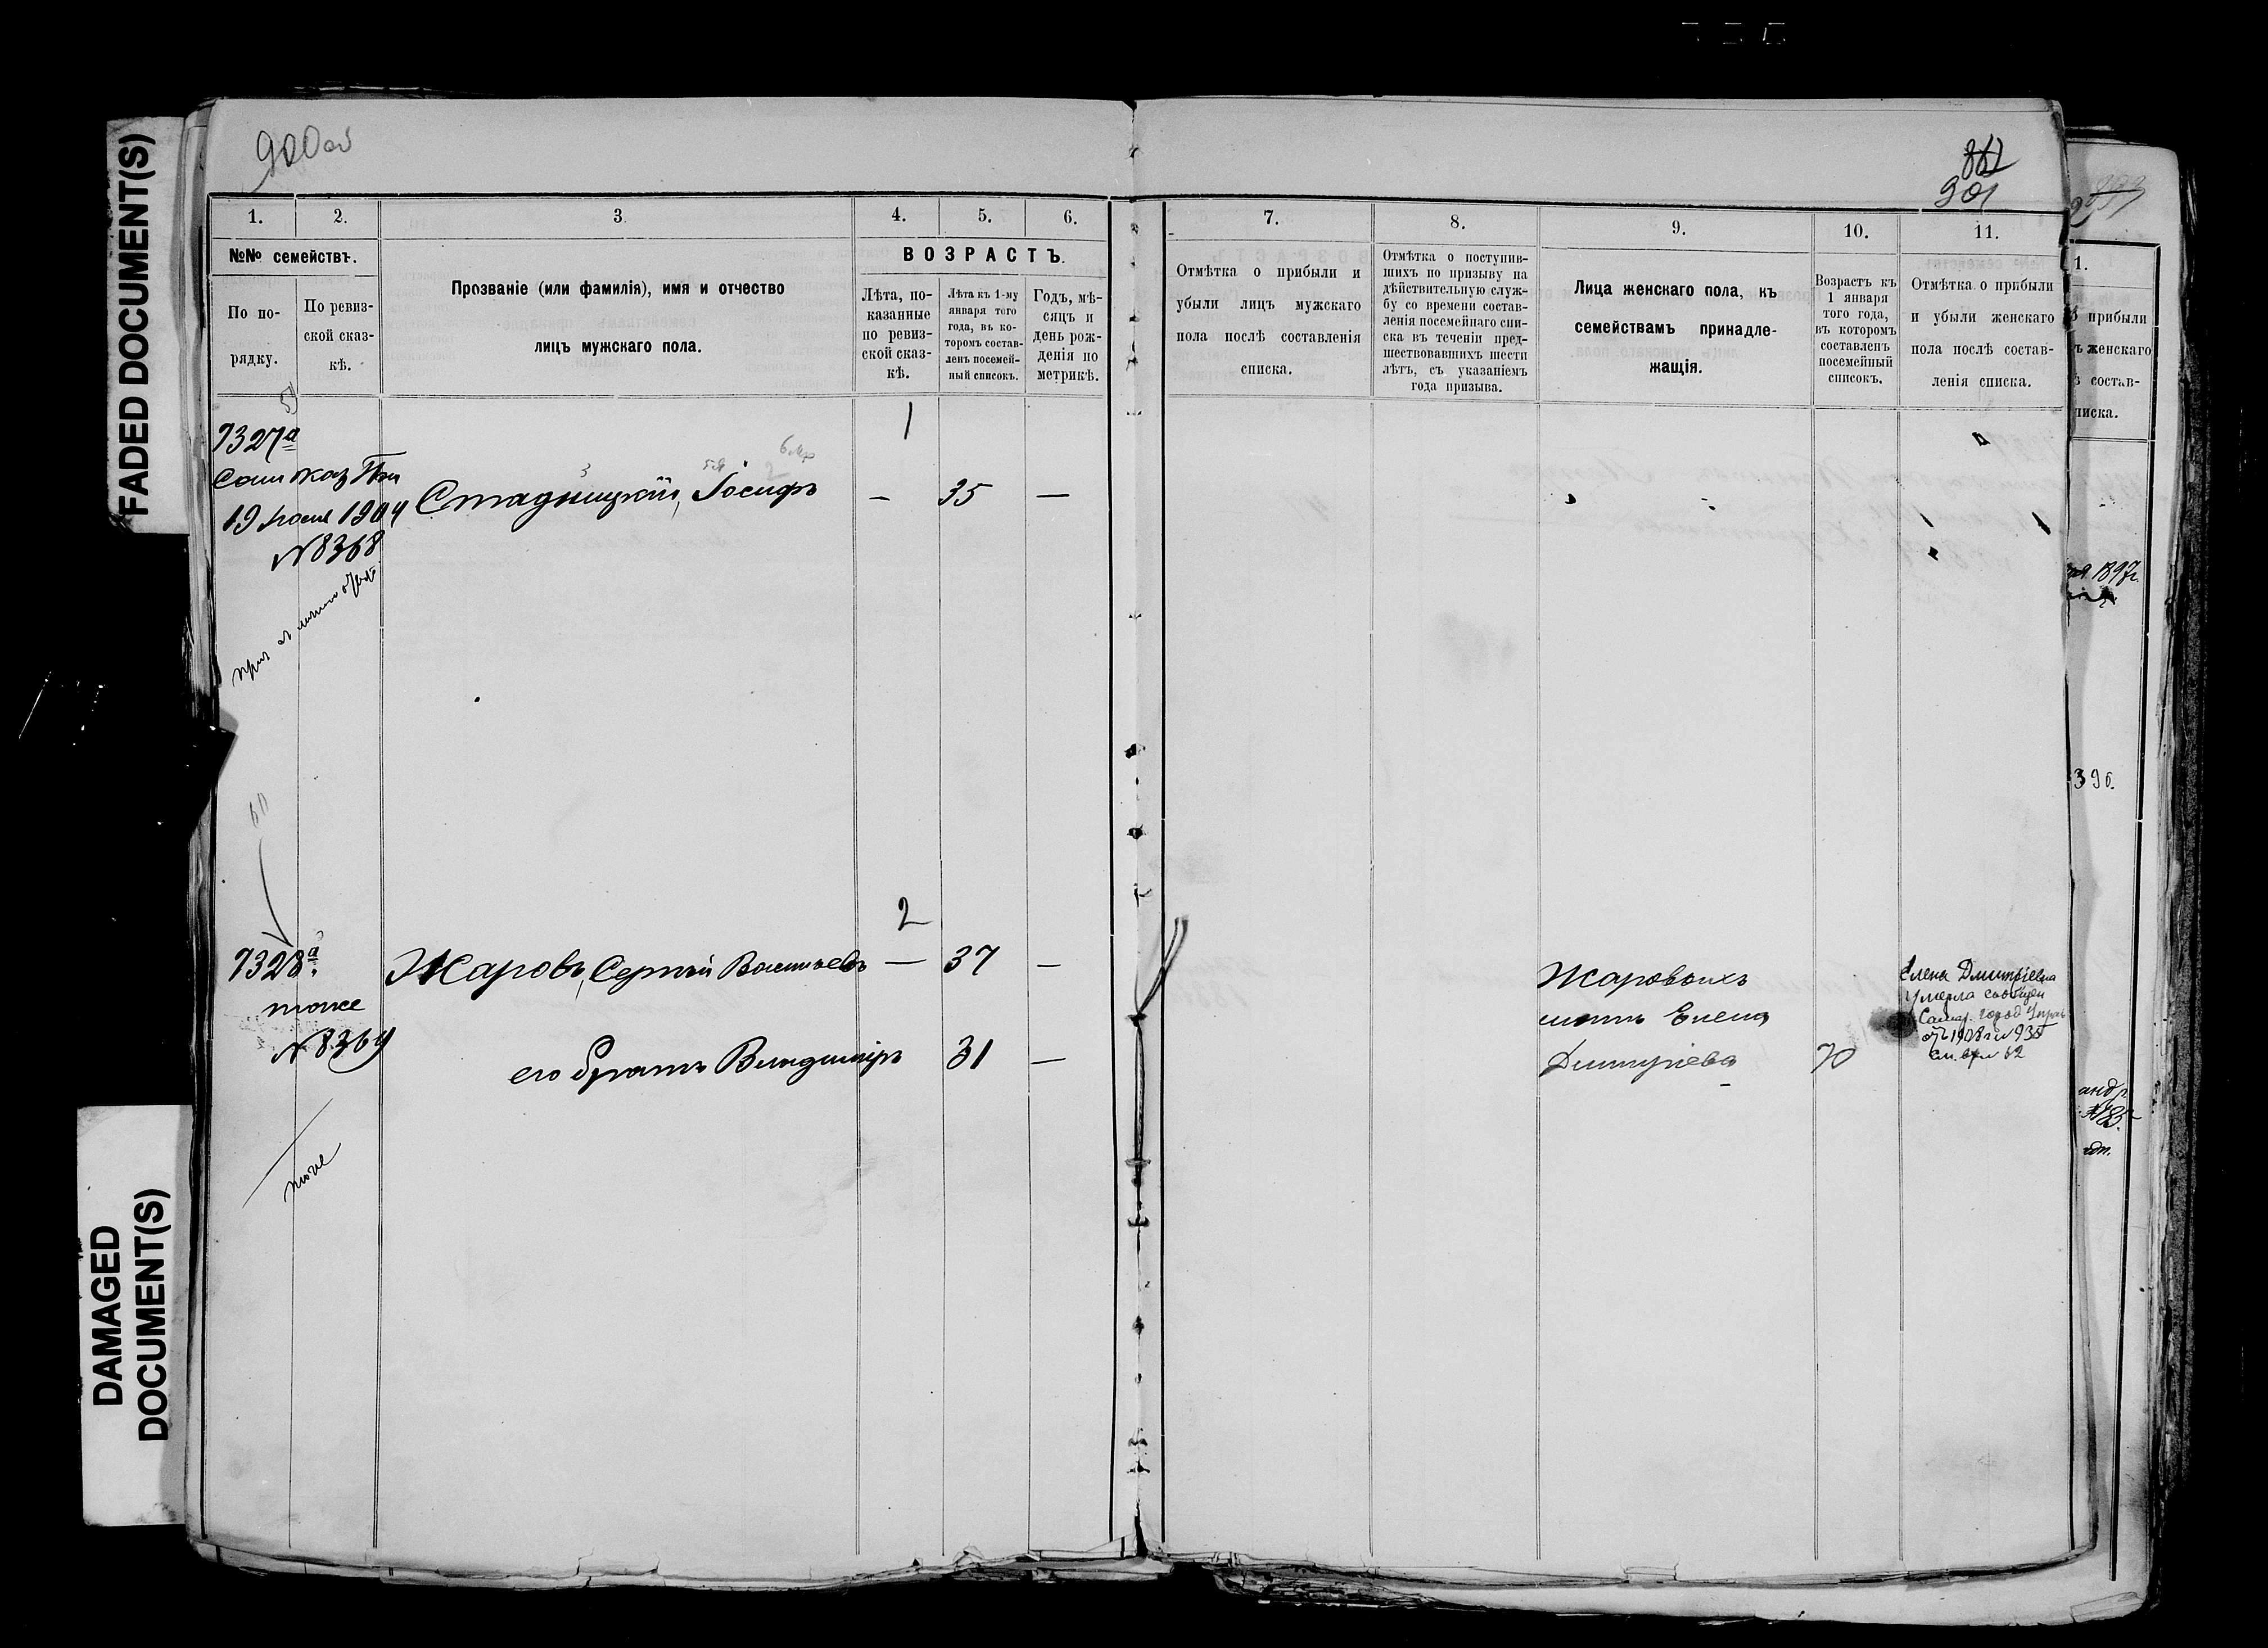 FADED DOCUMENT(S)
DAMAGED
DOCUMENT(S)
900об
862
901
1.
2.
3.
4.
5.
6.
№№ семействъ.
По по-
рядку.
По ревиз-
ской сказ-
кѣ.
Прозваніе (или фамилія), имя и отчество
лицъ мужскаго пола.
ВОЗРАСТЪ.
Лѣта, по-
казанные
по ревиз-
ской сказ-
кѣ.
Лѣта къ 1-му
января того
года, въ ко-
торомъ состав-
ленъ посемей-
ный списокъ.
Годъ, мѣ-
сяцъ и
день рож-
денія по
метрикѣ.
1
9327а
Стадницкій, Іосифъ — 35 —
1904
№ 8368
2
9328а
Жаровъ, Сергѣй Васильевъ — 37 —
тоже
№ 8369
его братъ Владиміръ 31 —
тоже
7.
8.
9.
10.
11.
Отмѣтка о прибыли и
убыли лицъ мужскаго
пола послѣ составленія
списка.
Отмѣтка о поступив-
шихъ по призыву на
дѣйствительную служ-
бу со времени состав-
ленія посемейнаго спи-
ска въ теченіи пред-
шествовавшихъ шести
лѣтъ, съ указаніемъ
года призыва.
Лица женскаго пола, къ
семействамъ принадле-
жащія.
Возрастъ къ
1 января
того года,
въ которомъ
составленъ
посемейный
списокъ.
Отмѣтка о прибыли
и убыли женскаго
пола послѣ состав-
ленія списка.
Жаровыхъ
мать Елена
Дмитріева 70
Елена Дмитріевна
умерла
Самар. город.
1.
прибыли
женскаго
состав-
писка.
1897г.
396.